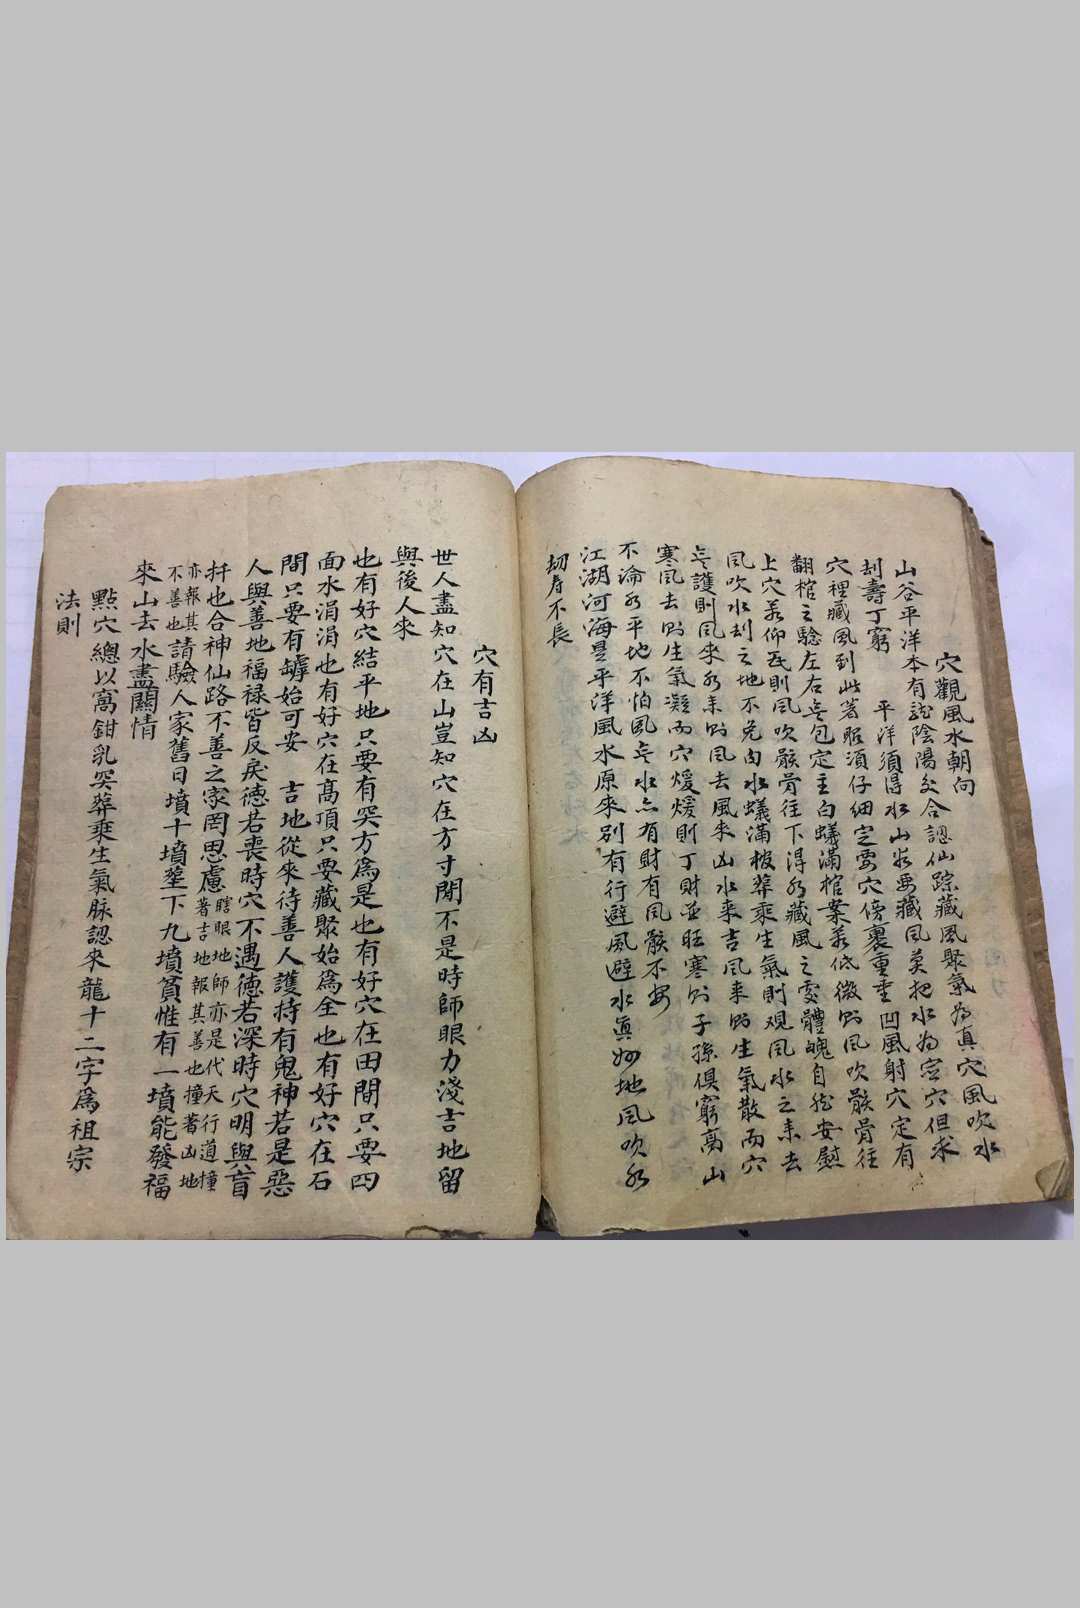 穴觀風水朝向
山谷平洋本有龍陰陽交合認仙踪藏風聚氣為真穴風吹水
刦壽丁窮　平洋須得水山谷要藏風莫把水為空穴但求
穴裡藏風到此著眼須仔細定要穴傍裹重重凹風射穴定有
翻棺之驗左右无包定主白蟻滿棺案若低微則風吹骸骨往
上穴若仰瓦則風吹骸骨往下得水藏風之處體魄自然安慰
風吹水刦之地不免白水蟻滿棺葬乘生氣則观風水之来去
无護則風來水来則風去風来凶水来吉風来則生氣散而穴
寒風去則生氣凝而穴煖煖則丁財並旺寒則子孫俱窮高山
不論水平地不怕風无水亦有財有風骸不安
江湖河海是平洋風水原來別有行避風避水真妙地風吹水
刼寿不長
穴有吉凶
世人盡知穴在山豈知穴在方寸間不是時師眼力淺吉地留
與後人來
也有好穴結平地只要有突方為是也有好穴在田間只要四
面水涓涓也有好穴在高頂只要藏聚始為全也有好穴在石
間只要有罅始可安　吉地從來待善人護持有鬼神若是惡
人與善地福祿皆反戾德若喪時穴不遇德若深時穴明與盲
扦也合神仙路不善之家罔思慮瞎眼地師亦是代天行道撞
著吉地報其善也撞著凶地
亦報其
不善也請驗人家舊日墳十墳塟下九墳貧惟有一墳能發福
來山去水盡關情
點穴總以窩鉗乳突葬乘生氣脉認來龍十二字為祖宗
法則